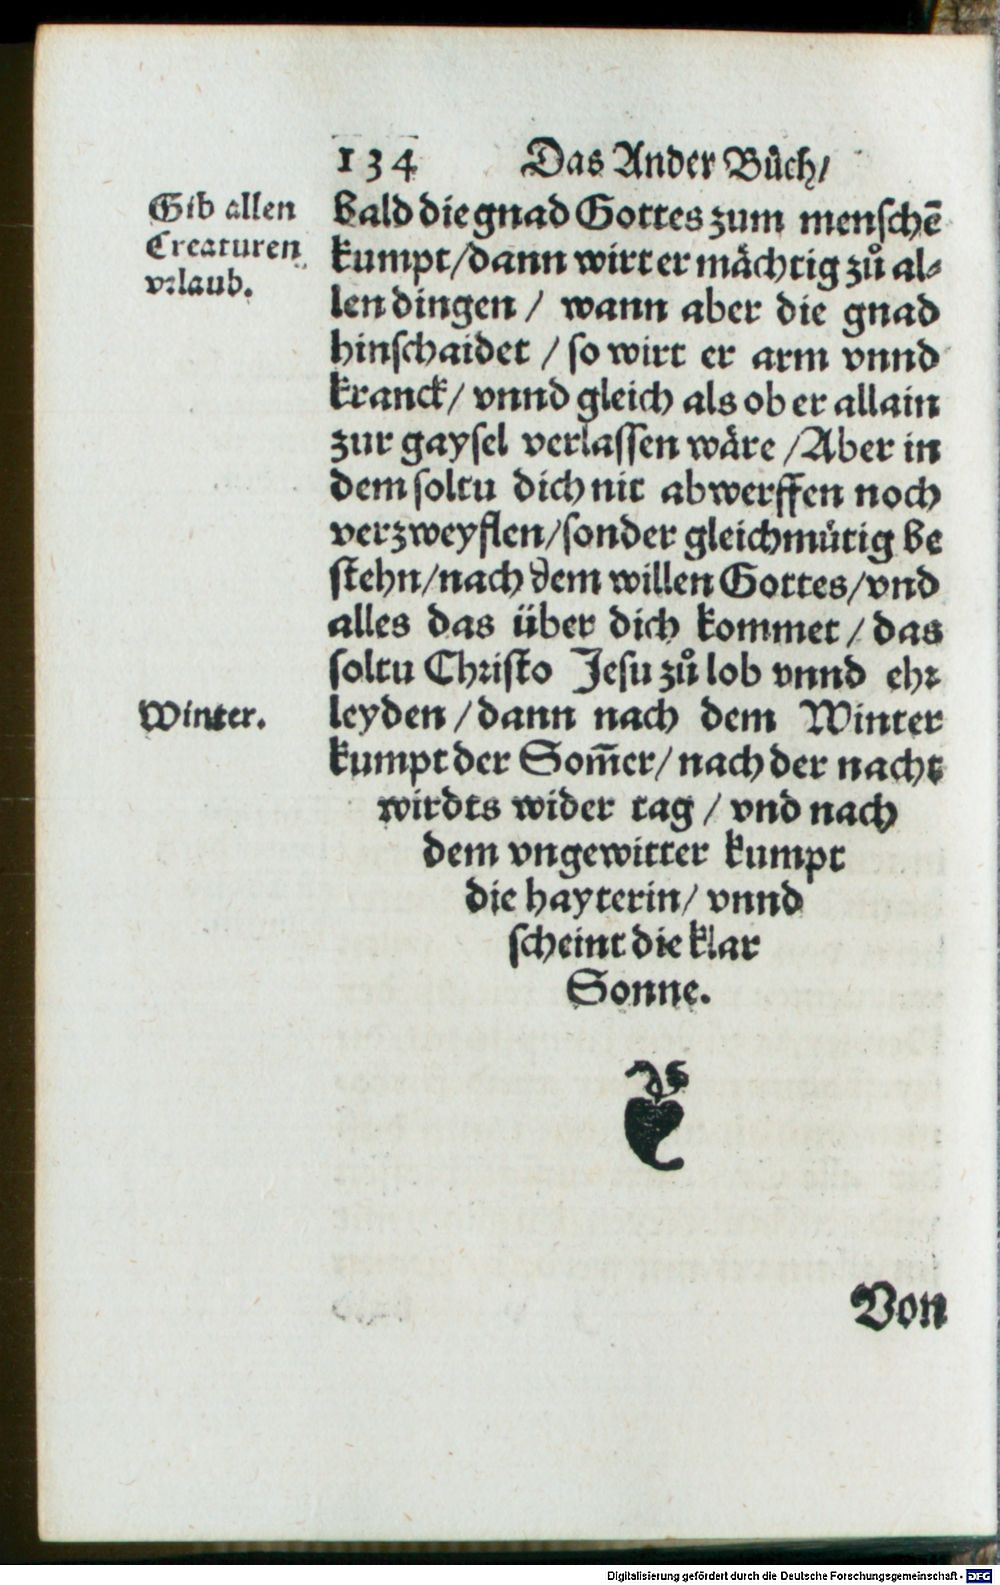 134 Das Ander Bůch/
Gib allen
Creaturen
vrlaub.
bald die gnad Gottes zum menschē
kumpt/dann wirt er mächtig zů al-
len dingen / wann aber die gnad
hinschaidet / so wirt er arm vnnd
kranck/ vnnd gleich als ob er allain
zur gaysel verlassen wäre /Aber in
dem soltu dich nit abwerffen noch
verzweyflen/sonder gleichmütig be
stehn/nach dem willen Gottes/vnd
alles das über dich kommet / das
soltu Christo Jesu zů lob vnnd ehr
Winter.
leyden /dann nach dem Winter
kumpt der Som̄er/ nach der nacht
wirdts wider tag / vnd nach
dem vngewitter kumpt
die hayterin/ vnnd
scheint die klar
Sonne.
Von
Digitalisierung gefördert durch die Deutsche Forschungsgemeinschaft - DFG